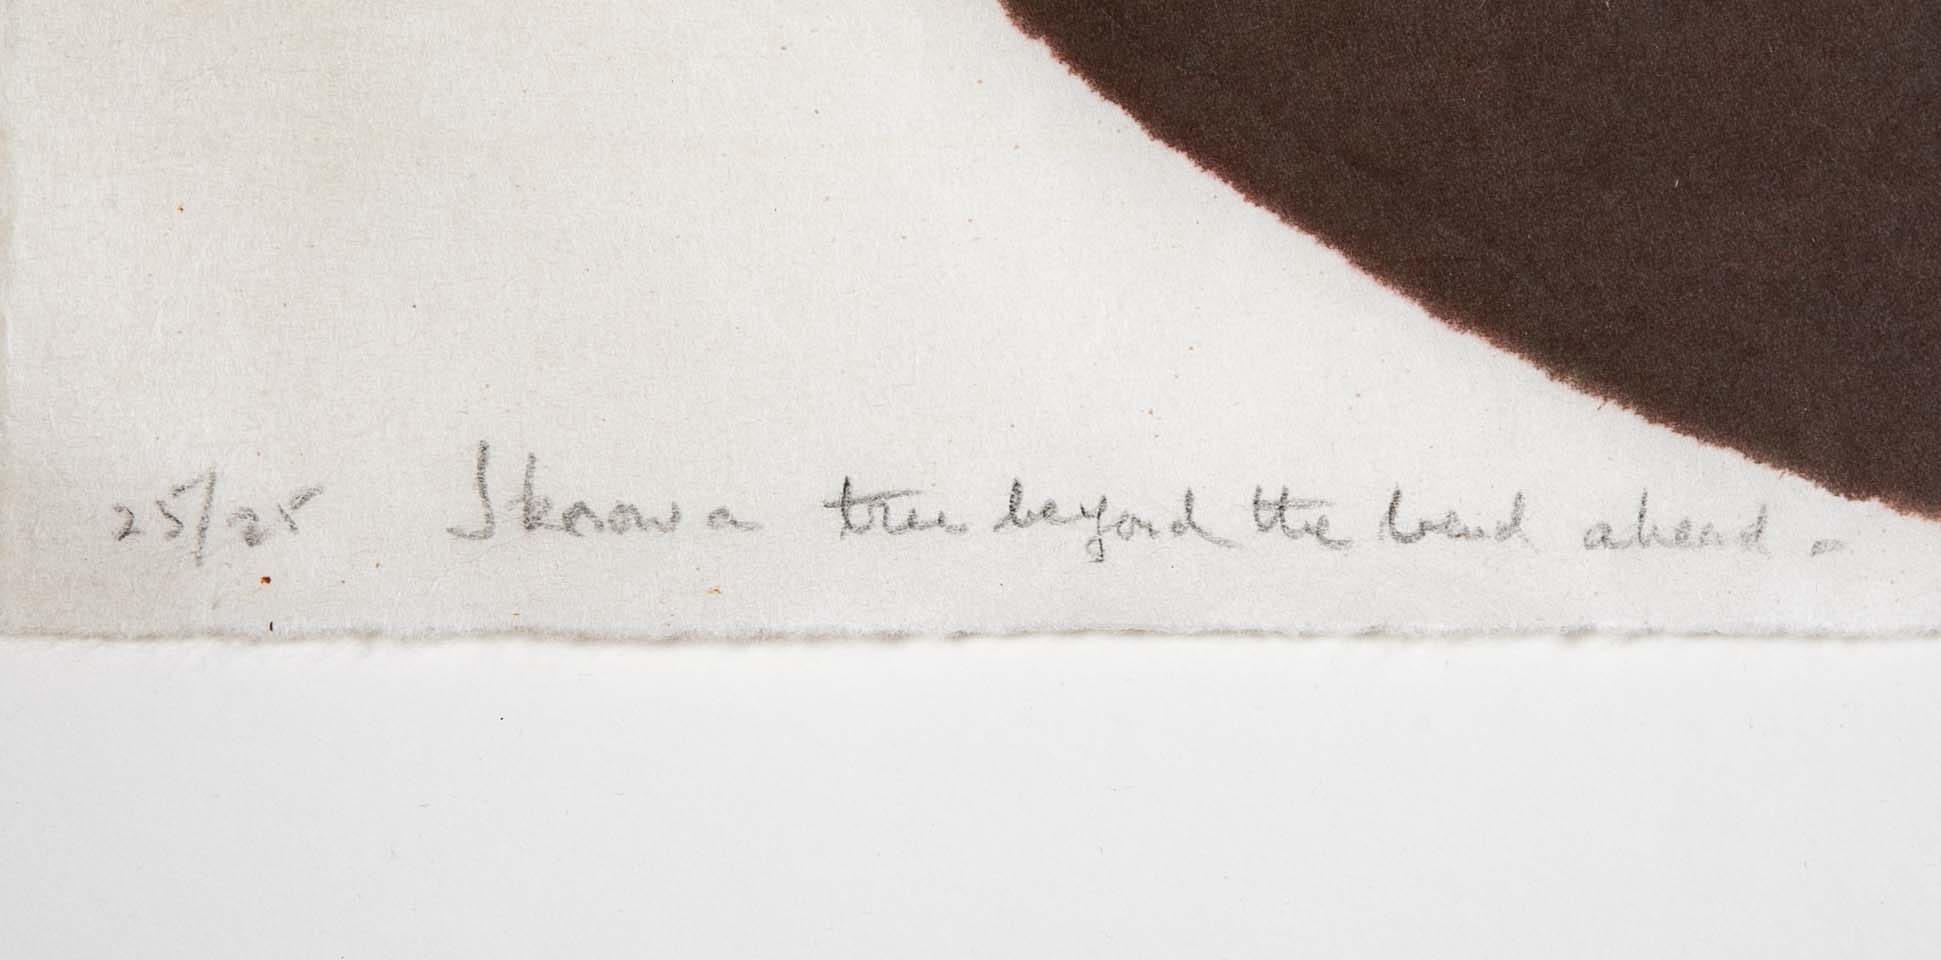 25/25 I know a tree beyond the bend ahead -